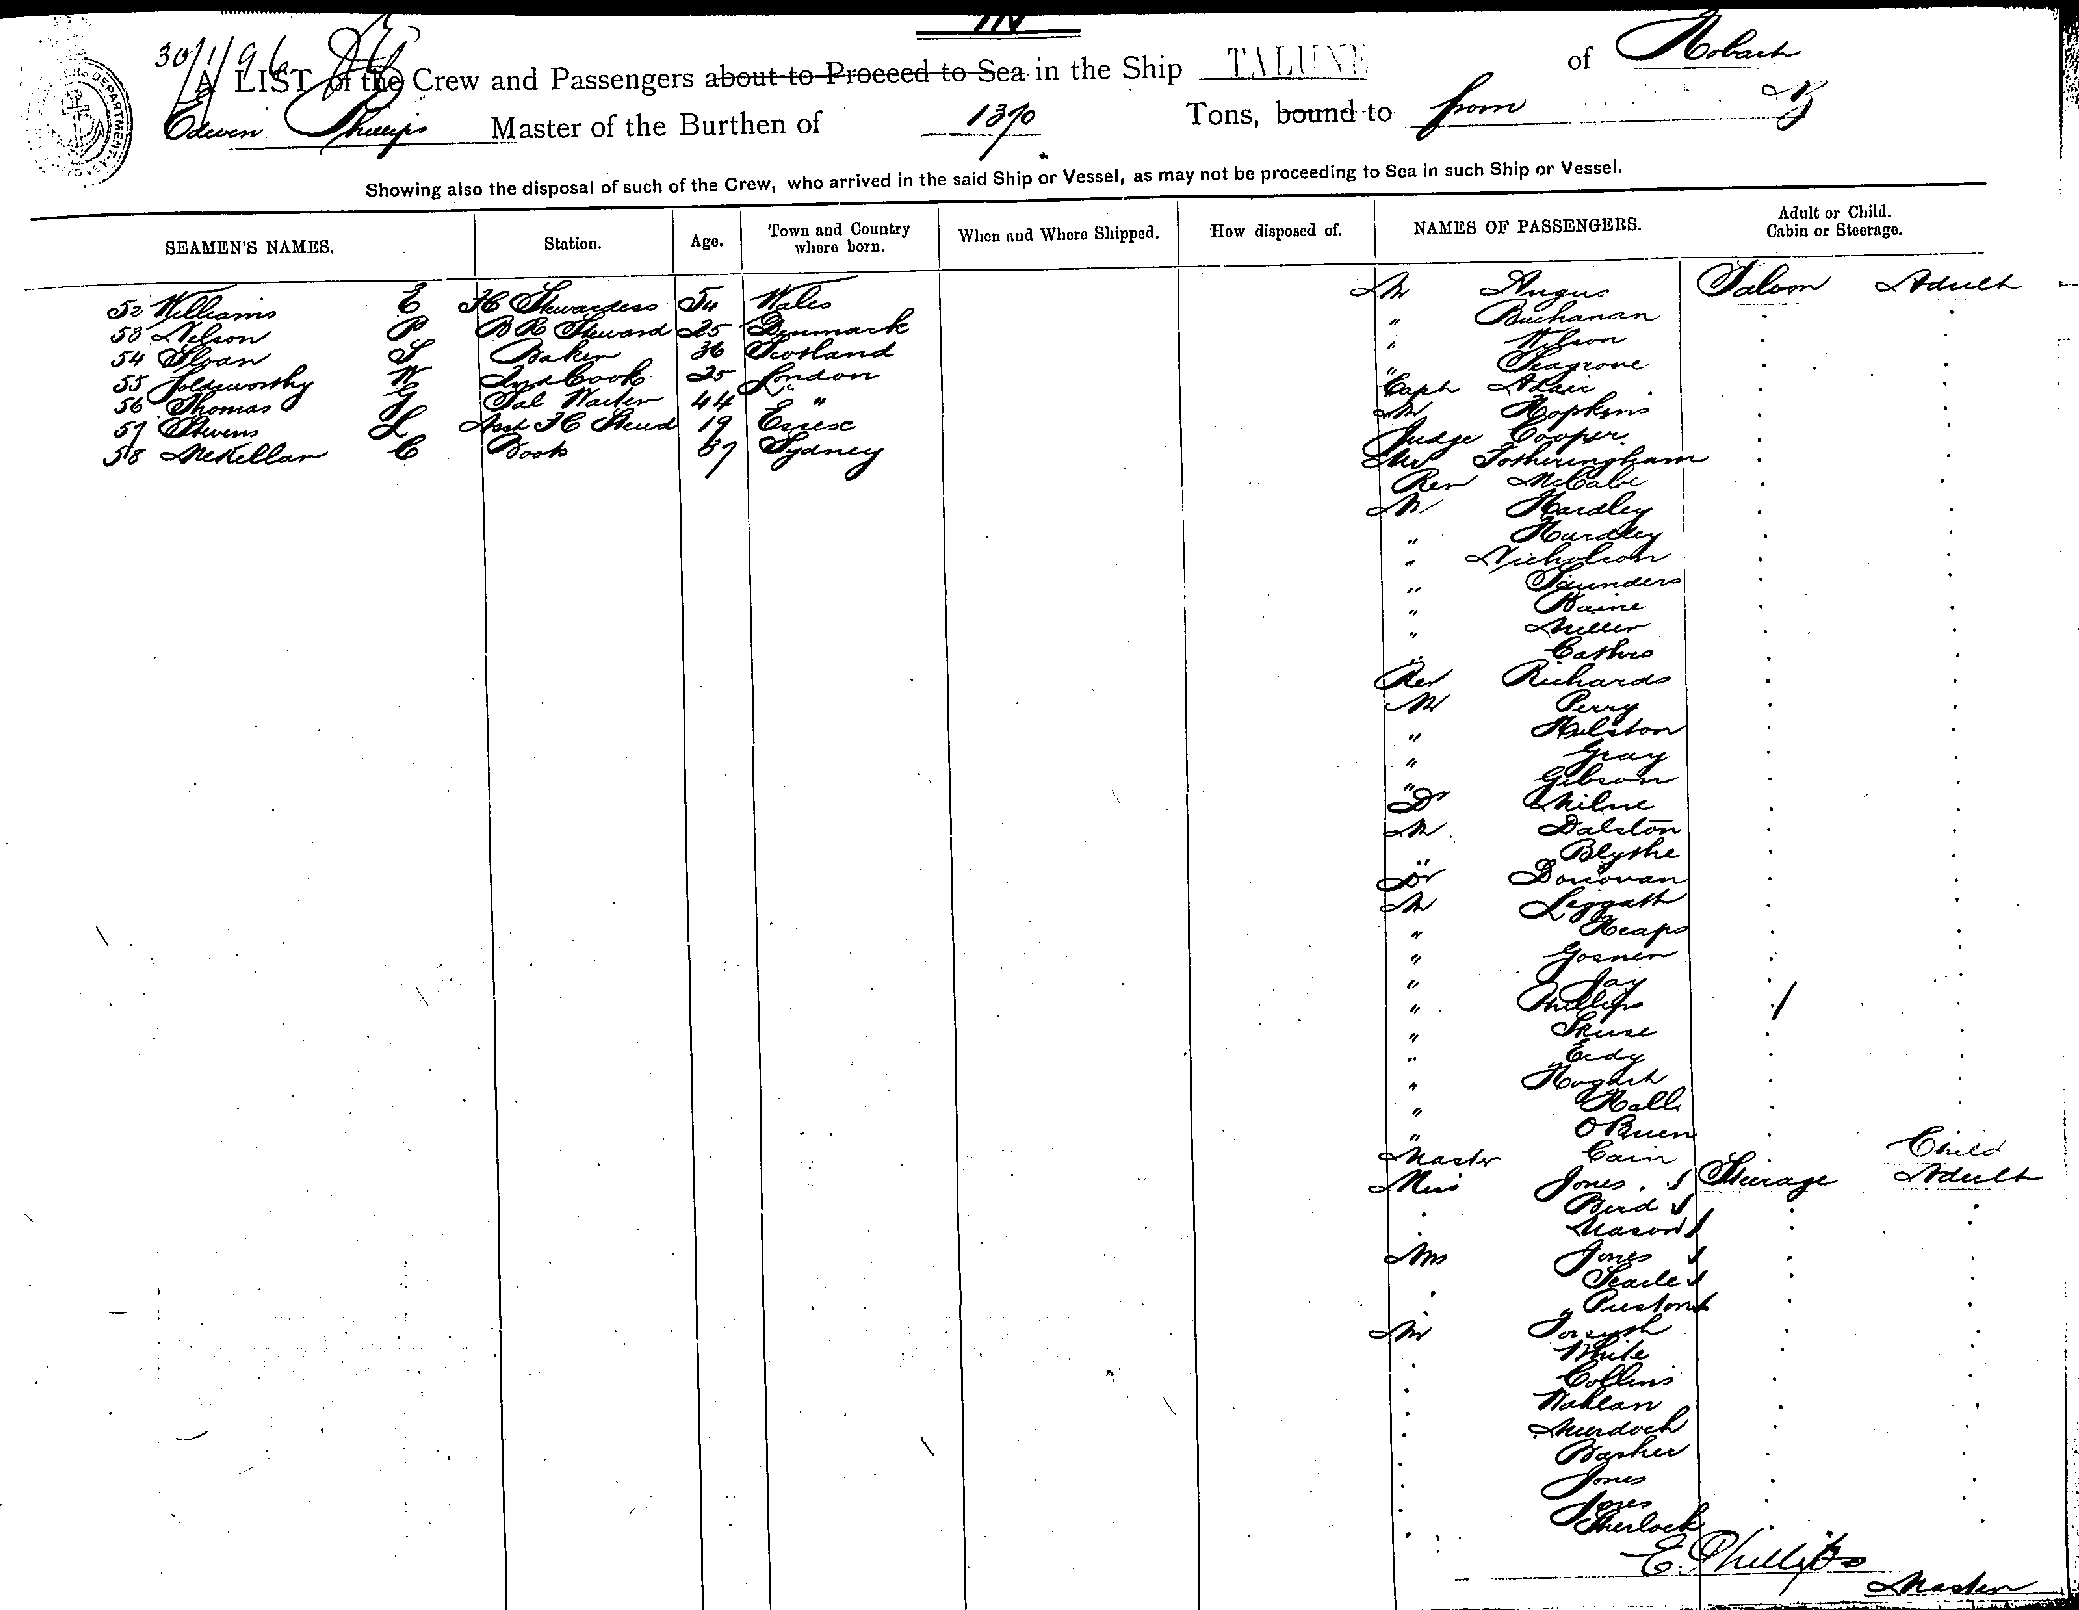 IN
30/1/96
A LIST of the Crew and Passengers about to Proceed to Sea in the Ship TALUNE of Hobart
Edwin Phillips Master of the Burthen of 1370 Tons, bound to from NZ
Showing also the disposal of such of the Crew, who arrived in the said Ship or Vessel, as may not be proceeding to Sea in such Ship or Vessel.
SEAMEN'S NAMES. Station. Age. Town and Country where born. When and Where Shipped. How disposed of. NAMES OF PASSENGERS. Adult or Child. Cabin or Steerage.
52 Williams E FC Stewardess 54 Wales Mr Angus Saloon Adult
53 Nelson P B R Steward 25 Denmark " Buchanan
54 Sloan S Baker 36 Scotland " Wilson
55 Holdsworthy W 2nd Cook 25 London " Seagrove
56 Thomas G Sal Waiter 44 " Capt Adair
57 Stevens L Asst FC Stewd 19 Essex Mr Hopkins
58 McKellar C Cook 37 Sydney Judge Cooper
Mr Fotheringham
Rev McCabe
Mr Hardley
" Hurdley
" Nicholson
" Saunders
" Haine
" Miller
" Cathro
Rev Richards
Mr Perry
" Hulston
" Gray
" Gibson
Dr Milne
Mr Dalston
" Blythe
Dr Donovan
Mr Leggatt
" Heaps
" Gosner
" Jay
" Phillips
" Skuse
" Eady
" Hogarth
" Hall
" O'Brien
Master Cain Child
Miss Jones Steerage Adult
Bird
Mason
Mrs Jones
Searle
Preston
Mr Forsyth
White
Collins
Wahlan
Murdoch
Barker
Jones
Jones
Sherlock
E. Phillips
Master